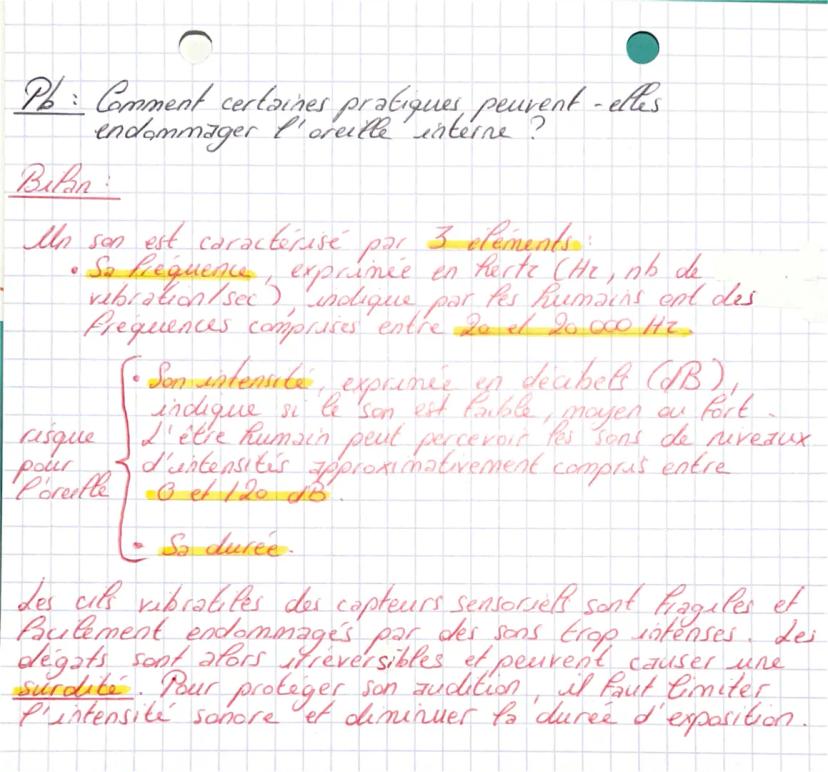 Pb : Comment certaines pratiques peuvent-elles
endommager l'oreille interne ?
Bilan :
Un son est caractérisé par 3 éléments :
• Sa fréquence, exprimée en hertz (Hz, nb de
vibration/sec), indique par les humains ont des
fréquences comprises entre 20 et 20 000 Hz.
• Son intensité, exprimée en décibels (dB),
indique si le son est faible, moyen ou fort.
L'être humain peut percevoir les sons de niveaux
d'intensités approximativement compris entre
0 et 120 dB.
• Sa durée.
risque
pour
l'oreille
Les cils vibratiles des capteurs sensoriels sont fragiles et
facilement endommagés par des sons trop intenses. Les
dégats sont alors irréversibles et peuvent causer une
surdité. Pour protéger son audition, il faut limiter
l'intensité sonore et diminuer la durée d'exposition.